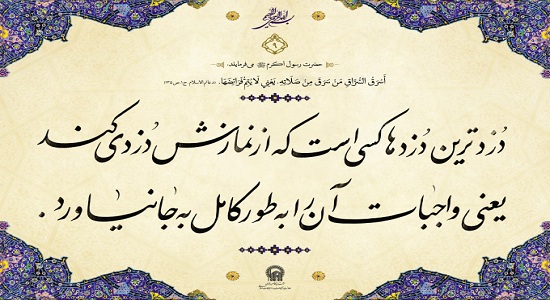 بسم الله الرحمن الرحیم
۹
حضرت رسول اکرم ﷺ می‌فرمایند:
أَسْرَقُ السُّرَّاقِ مَنْ سَرَقَ مِنْ صَلَاتِهِ. یَعْنِي لَا یُتِمُّ فَرَائِضَهَا. دعائم الاسلام ج۱ ص ۱۳۵
دُزدترین دُزدها کسی است که از نمازش دُزدی کند
یعنی واجبات آن را به طور کامل به جا نیاورد.